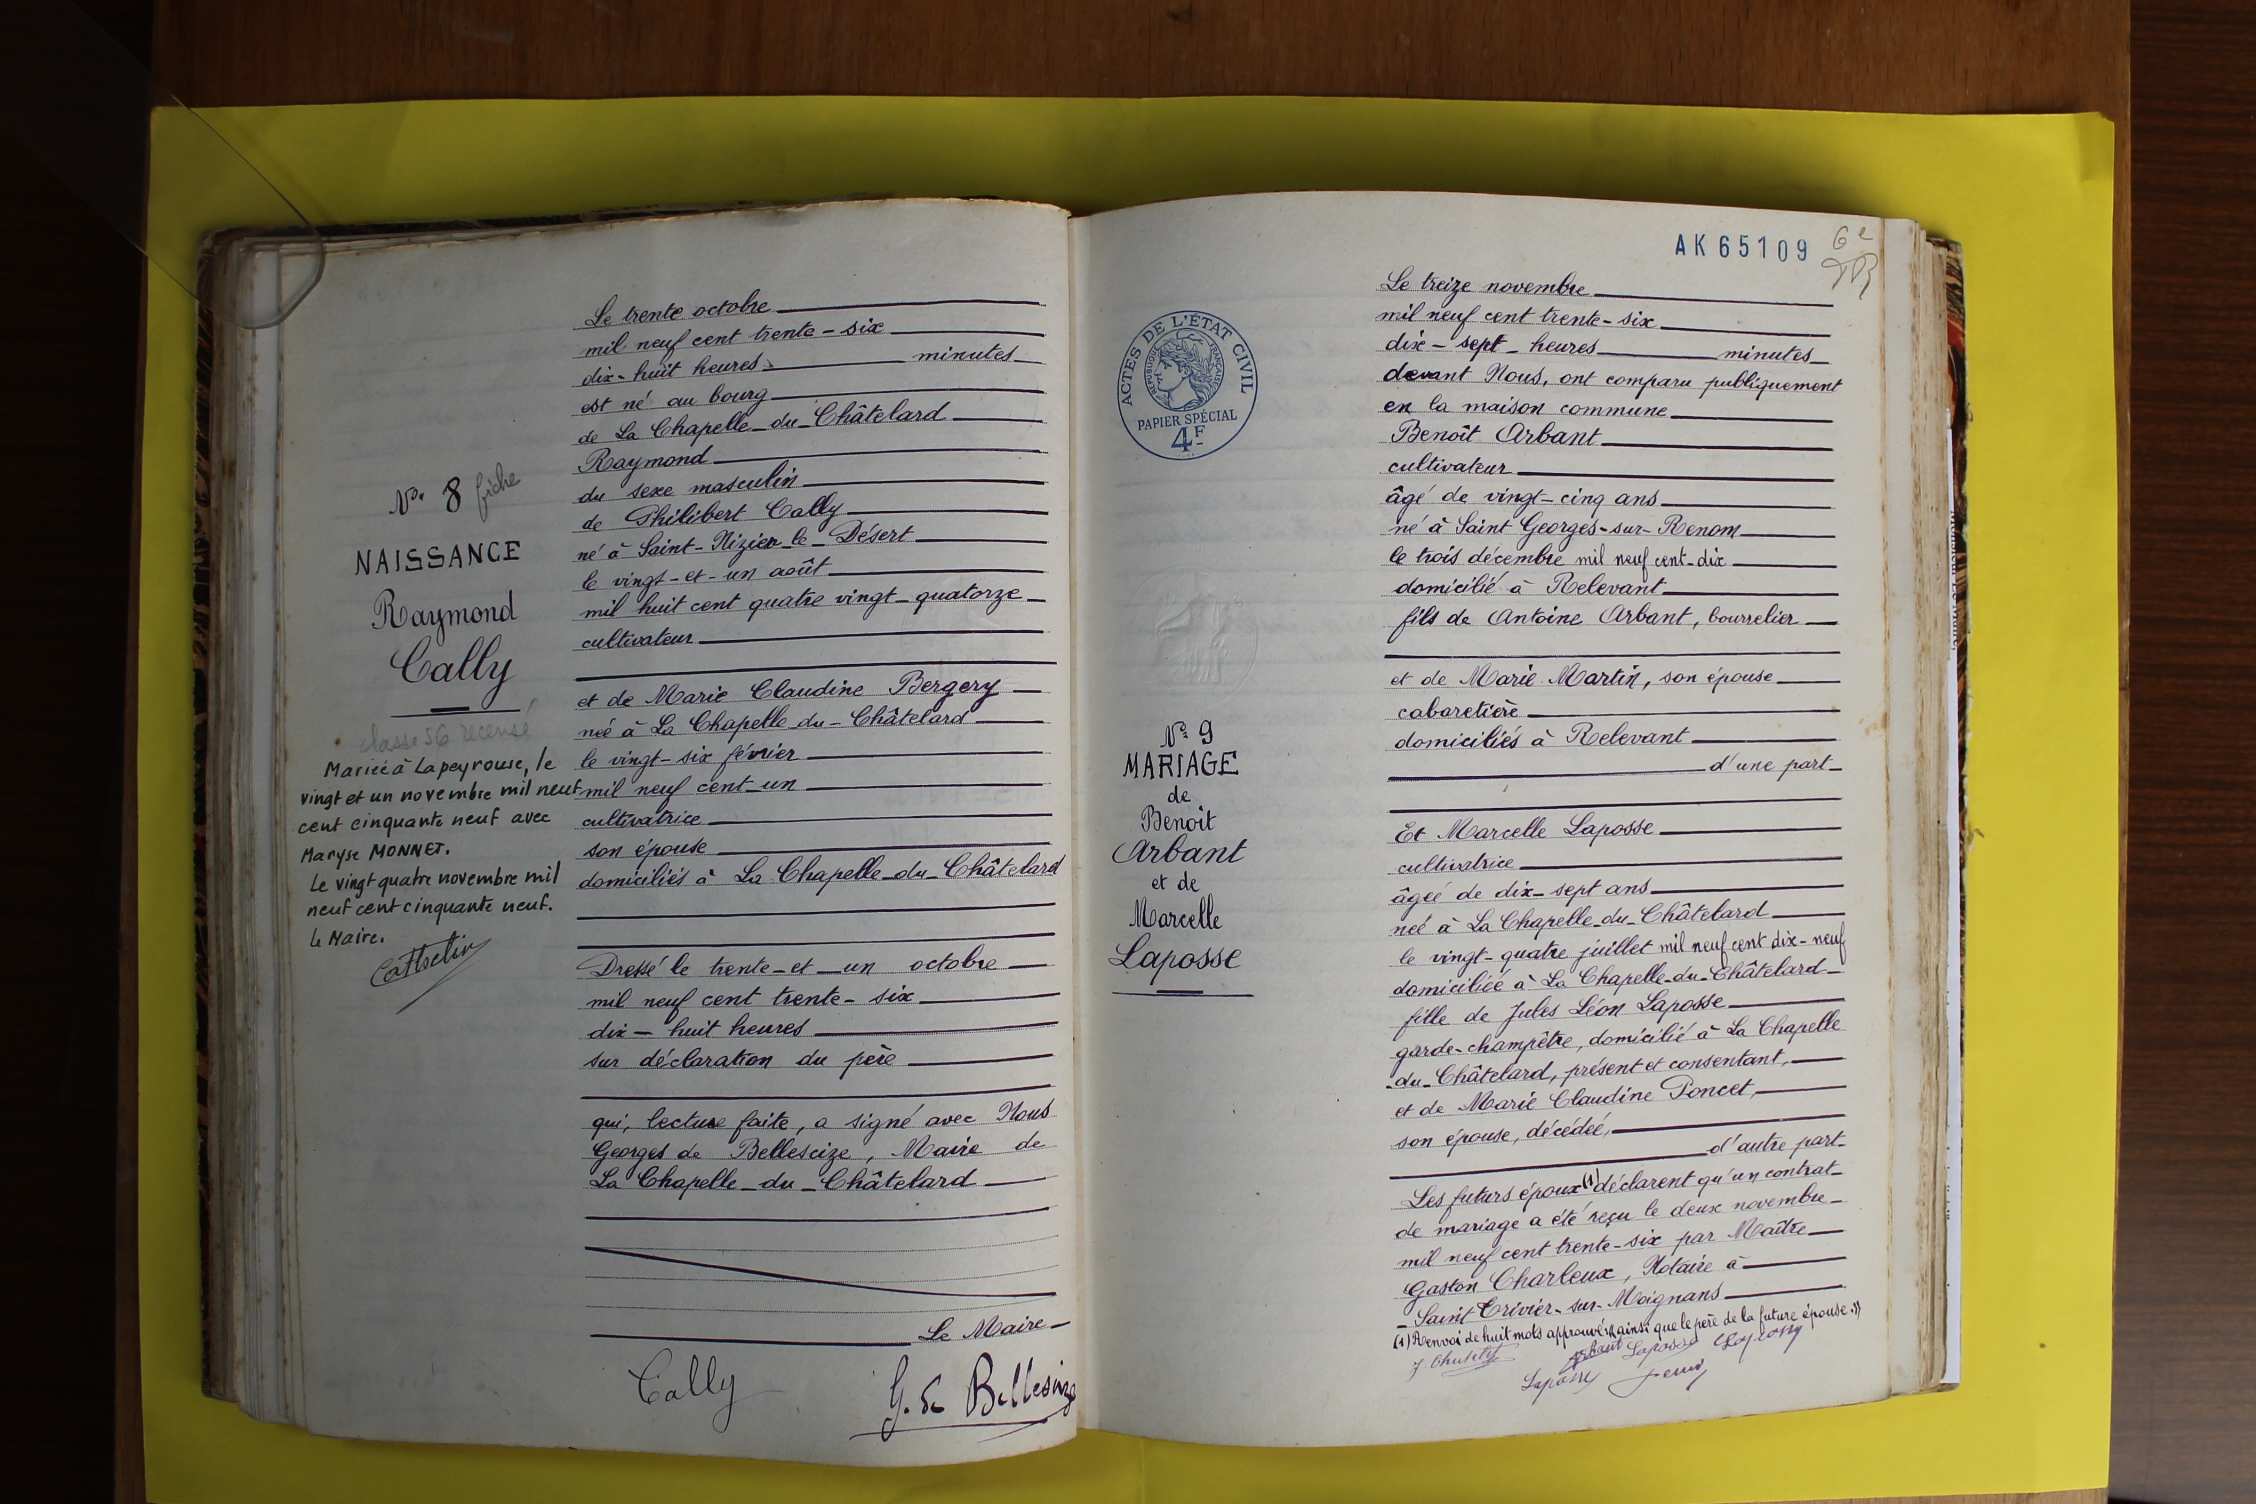 N° 8 fiche
NAISSANCE
Raymond
Cally
classe 56 recensé
Marié à Lapeyrouse, le
vingt et un novembre mil neuf
cent cinquante neuf avec
Maryse MONNET.
Le vingt quatre novembre mil
neuf cent cinquante neuf.
Le Maire.
Le trente octobre
mil neuf cent trente-six
dix-huit heures minutes
est né au bourg
de La Chapelle-du-Châtelard
Raymond
du sexe masculin
de Philibert Cally
né à Saint-Nizier-le-Désert
le vingt-et-un août
mil huit cent quatre vingt-quatorze
cultivateur
et de Marie Claudine Bergery
née à La Chapelle-du-Châtelard
le vingt-six février
mil neuf cent-un
cultivatrice
son épouse
domiciliés à La Chapelle-du-Châtelard
Dressé le trente-et-un octobre
mil neuf cent trente-six
dix-huit heures
sur déclaration du père
qui, lecture faite, a signé avec Nous
Georges de Bellescize, Maire de
La Chapelle-du-Châtelard
Le Maire
Cally
G. de Bellescize
AK 65109
6e
ACTES DE L'ÉTAT CIVIL
RÉPUBLIQUE FRANÇAISE
PAPIER SPÉCIAL
4F
N° 9
MARIAGE
de
Benoît
Arbant
et de
Marcelle
Laposse
Le treize novembre
mil neuf cent trente-six
dix-sept-heures minutes
devant Nous, ont comparu publiquement
en la maison commune
Benoît Arbant
cultivateur
âgé de vingt-cinq ans
né à Saint Georges-sur-Renom
le trois décembre mil neuf cent-dix
domicilié à Relevant
fils de Antoine Arbant, bourrelier
et de Marie Martin, son épouse
cabaretière
domiciliés à Relevant
d'une part
Et Marcelle Laposse
cultivatrice
âgée de dix-sept ans
née à La Chapelle-du-Châtelard
le vingt-quatre juillet mil neuf cent dix-neuf
domiciliée à La Chapelle-du-Châtelard
fille de Jules Léon Laposse
garde-champêtre, domicilié à La Chapelle
-du-Châtelard, présent et consentant,
et de Marie Claudine Poncet,
son épouse, décédée,
d'autre part
Les futurs époux (1) déclarent qu'un contrat
de mariage a été reçu le deux novembre
mil neuf cent trente-six par Maître
Gaston Charleux, Notaire à
Saint Trivier-sur-Moignans
(1) Renvoi de huit mots approuvés "ainsi que le père de la future épouse."
Arbant Laposse
Laposse